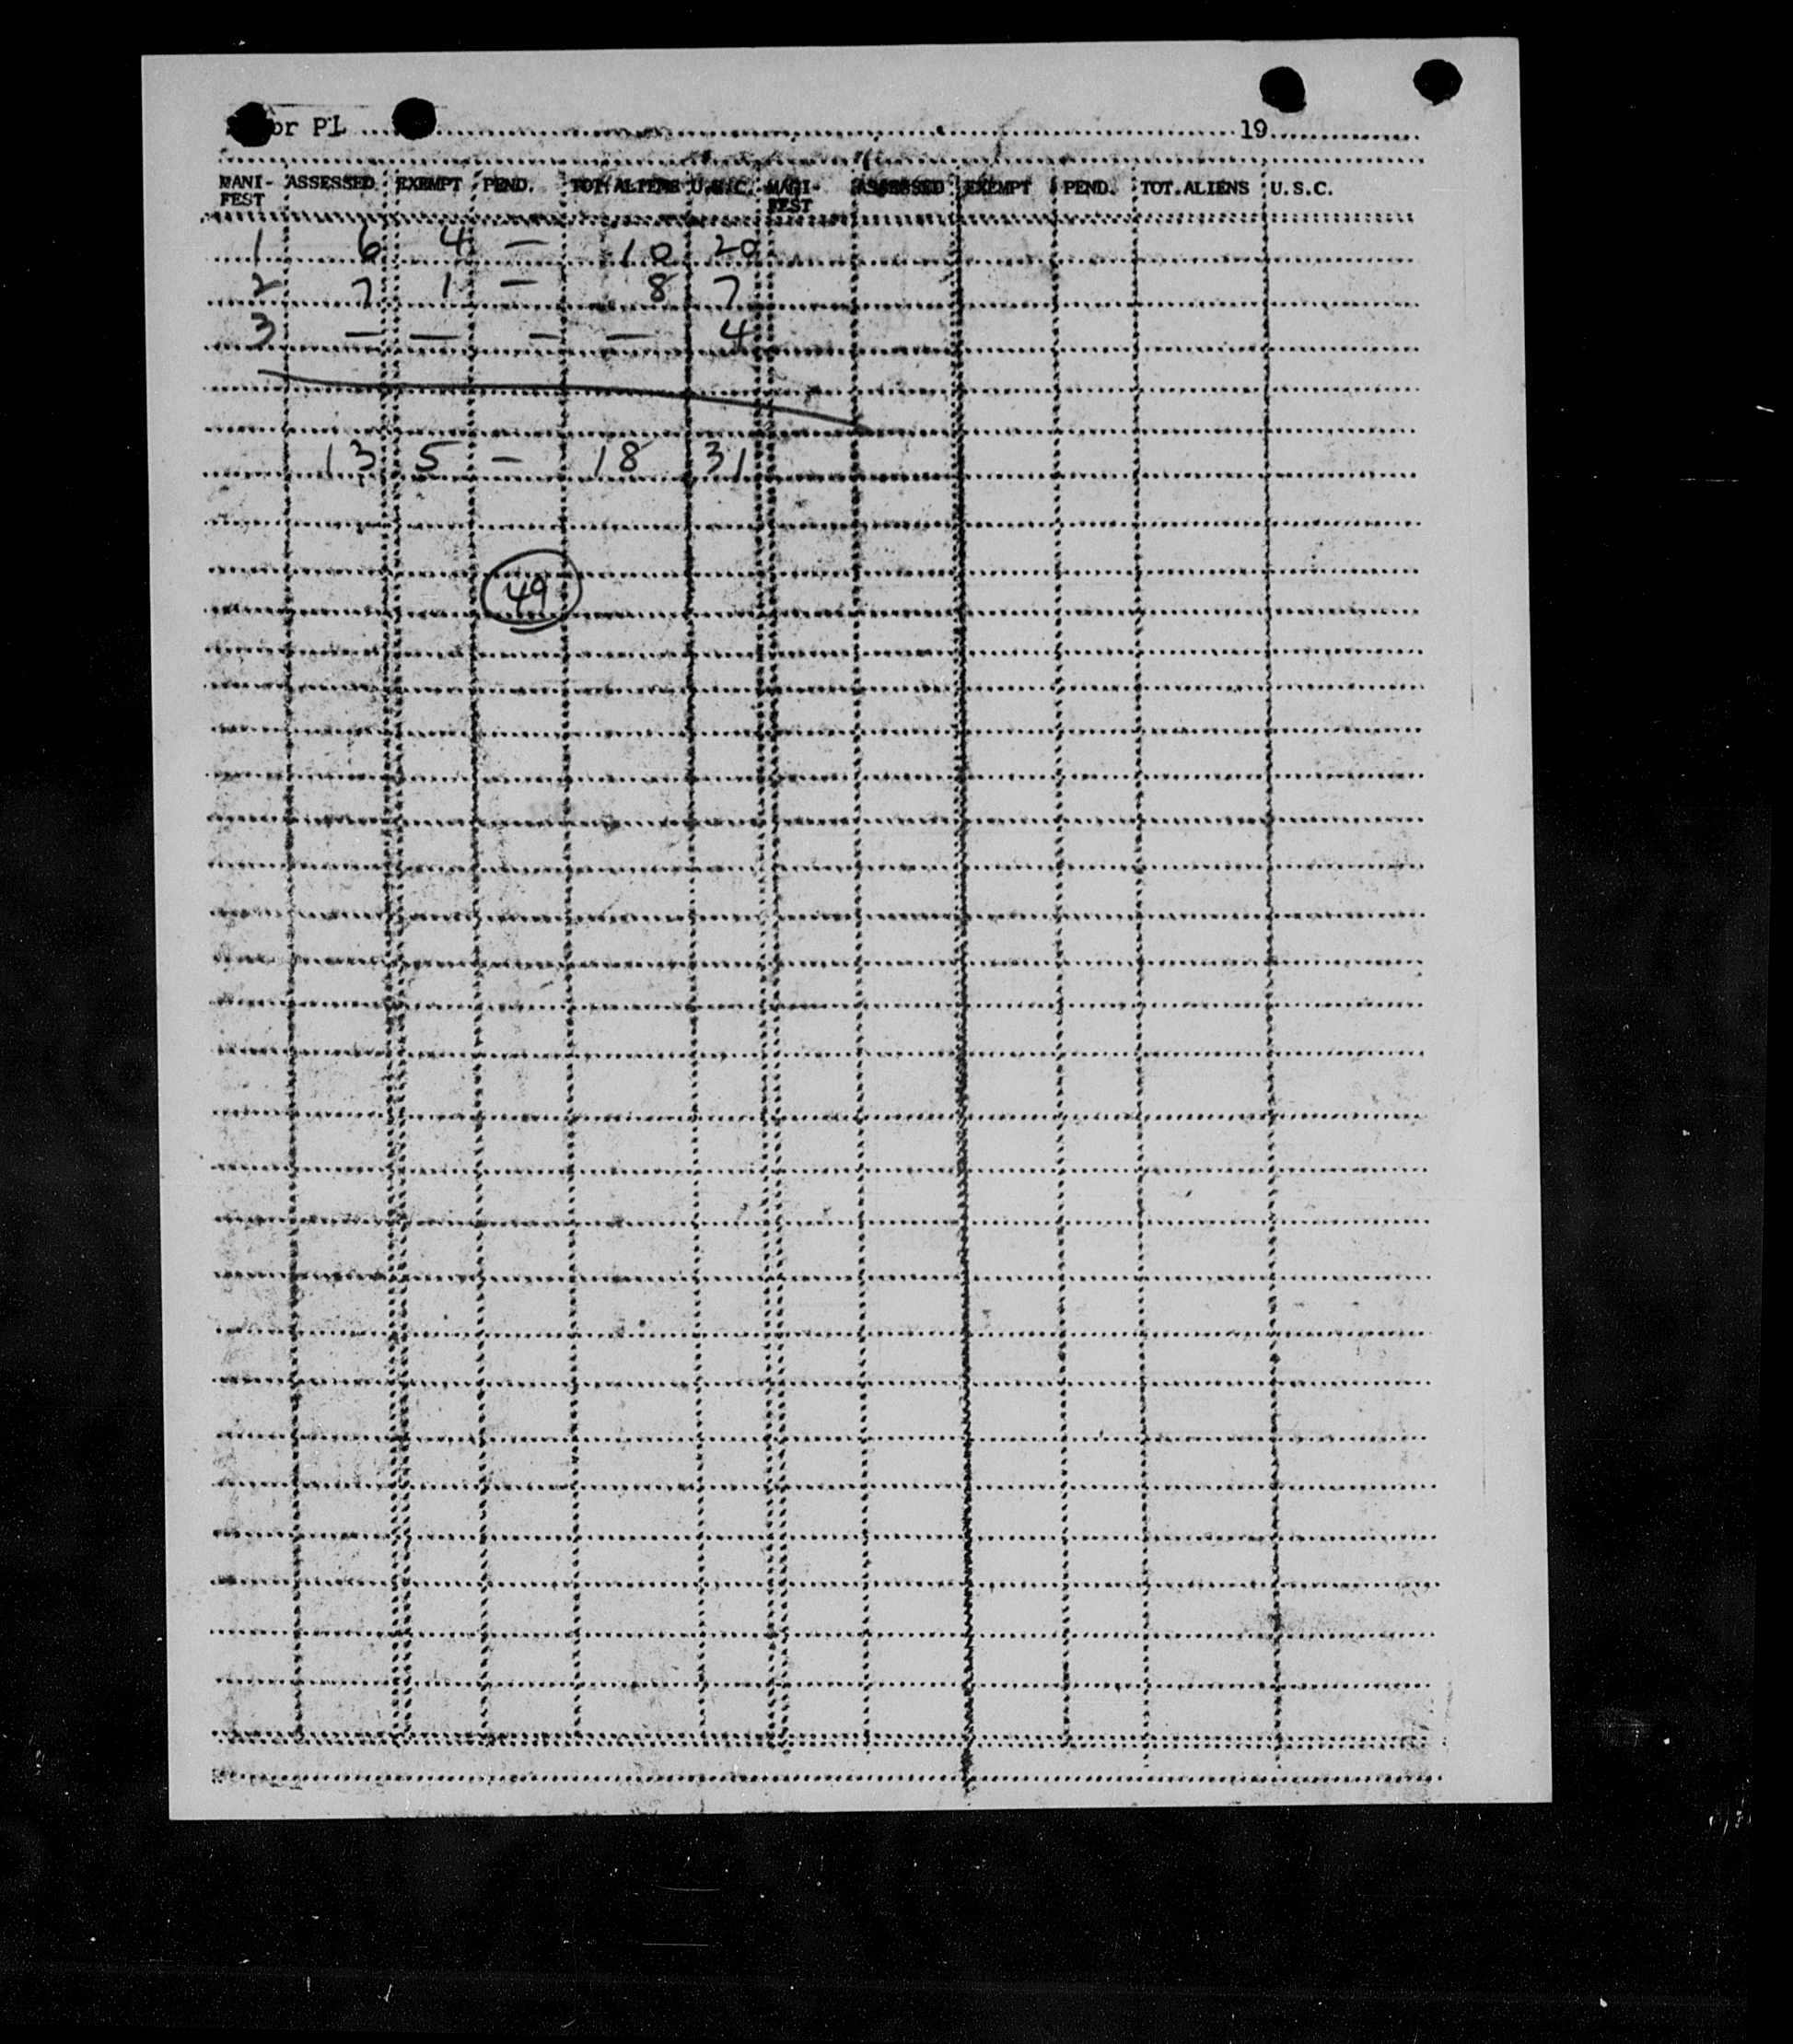 or PL 19
MANI- ASSESSED EXEMPT PEND. TOT. ALIENS U.S.C. MANI- ASSESSED EXEMPT PEND. TOT. ALIENS U.S.C.
FEST FEST
1 6 4 — 10 20
2 7 1 — 8 7
3 — — — — 4
13 5 — 18 31
49